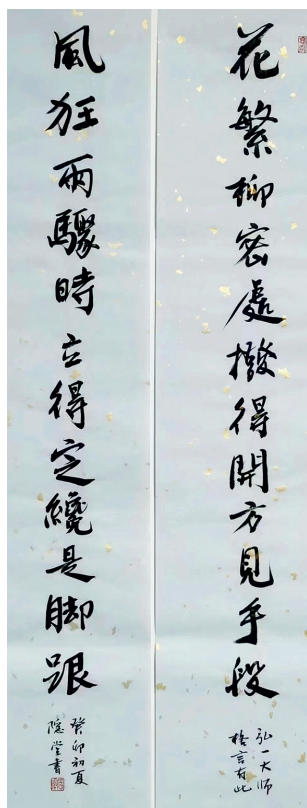 花繁柳密處撥得開方見手段
弘一大師
格言有此
風狂雨驟時立得定纔是脚跟
癸卯初夏
隱堂書